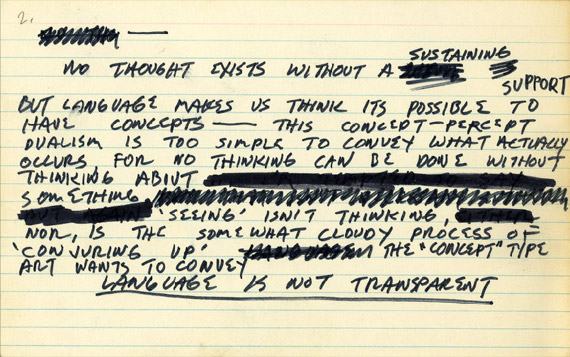 2.
NO THOUGHT EXISTS WITHOUT A SUSTAINING
SUPPORT
BUT LANGUAGE MAKES US THINK ITS POSSIBLE TO
HAVE CONCEPTS — THIS CONCEPT-PERCEPT
DUALISM IS TOO SIMPLE TO CONVEY WHAT ACTUALLY
OCCURS FOR NO THINKING CAN BE DONE WITHOUT
THINKING ABIUT
SOMETHING
'SEEING' ISN'T THINKING,
NOR, IS THE SOMEWHAT CLOUDY PROCESS OF
'CONJURING UP' THE "CONCEPT" TYPE
ART WANTS TO CONVEY
LANGUAGE IS NOT TRANSPARENT